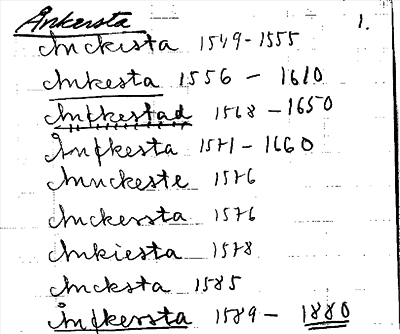 Ånkersta 1.
Anckista 1549-1555
Ankesta 1556 - 1610
Anfkestad 1568 - 1650
Ånfkesta 1571 - 1660
Annckeste 1576
Anckersta 1576
Ankiesta 1578
Ancksta 1585
Ånfkersta 1589 - 1880